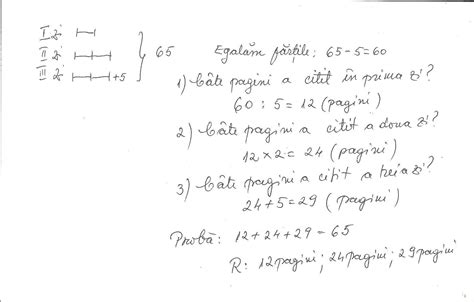 I zi
II zi
III zi +5
65
Egalăm părțile: 65-5=60
1) Câte pagini a citit în prima zi?
60 : 5 = 12 (pagini)
2) Câte pagini a citit a doua zi?
12 x 2 = 24 (pagini)
3) Câte pagini a citit a treia zi?
24 + 5 = 29 (pagini)
Probă: 12 + 24 + 29 = 65
R: 12 pagini; 24 pagini; 29 pagini